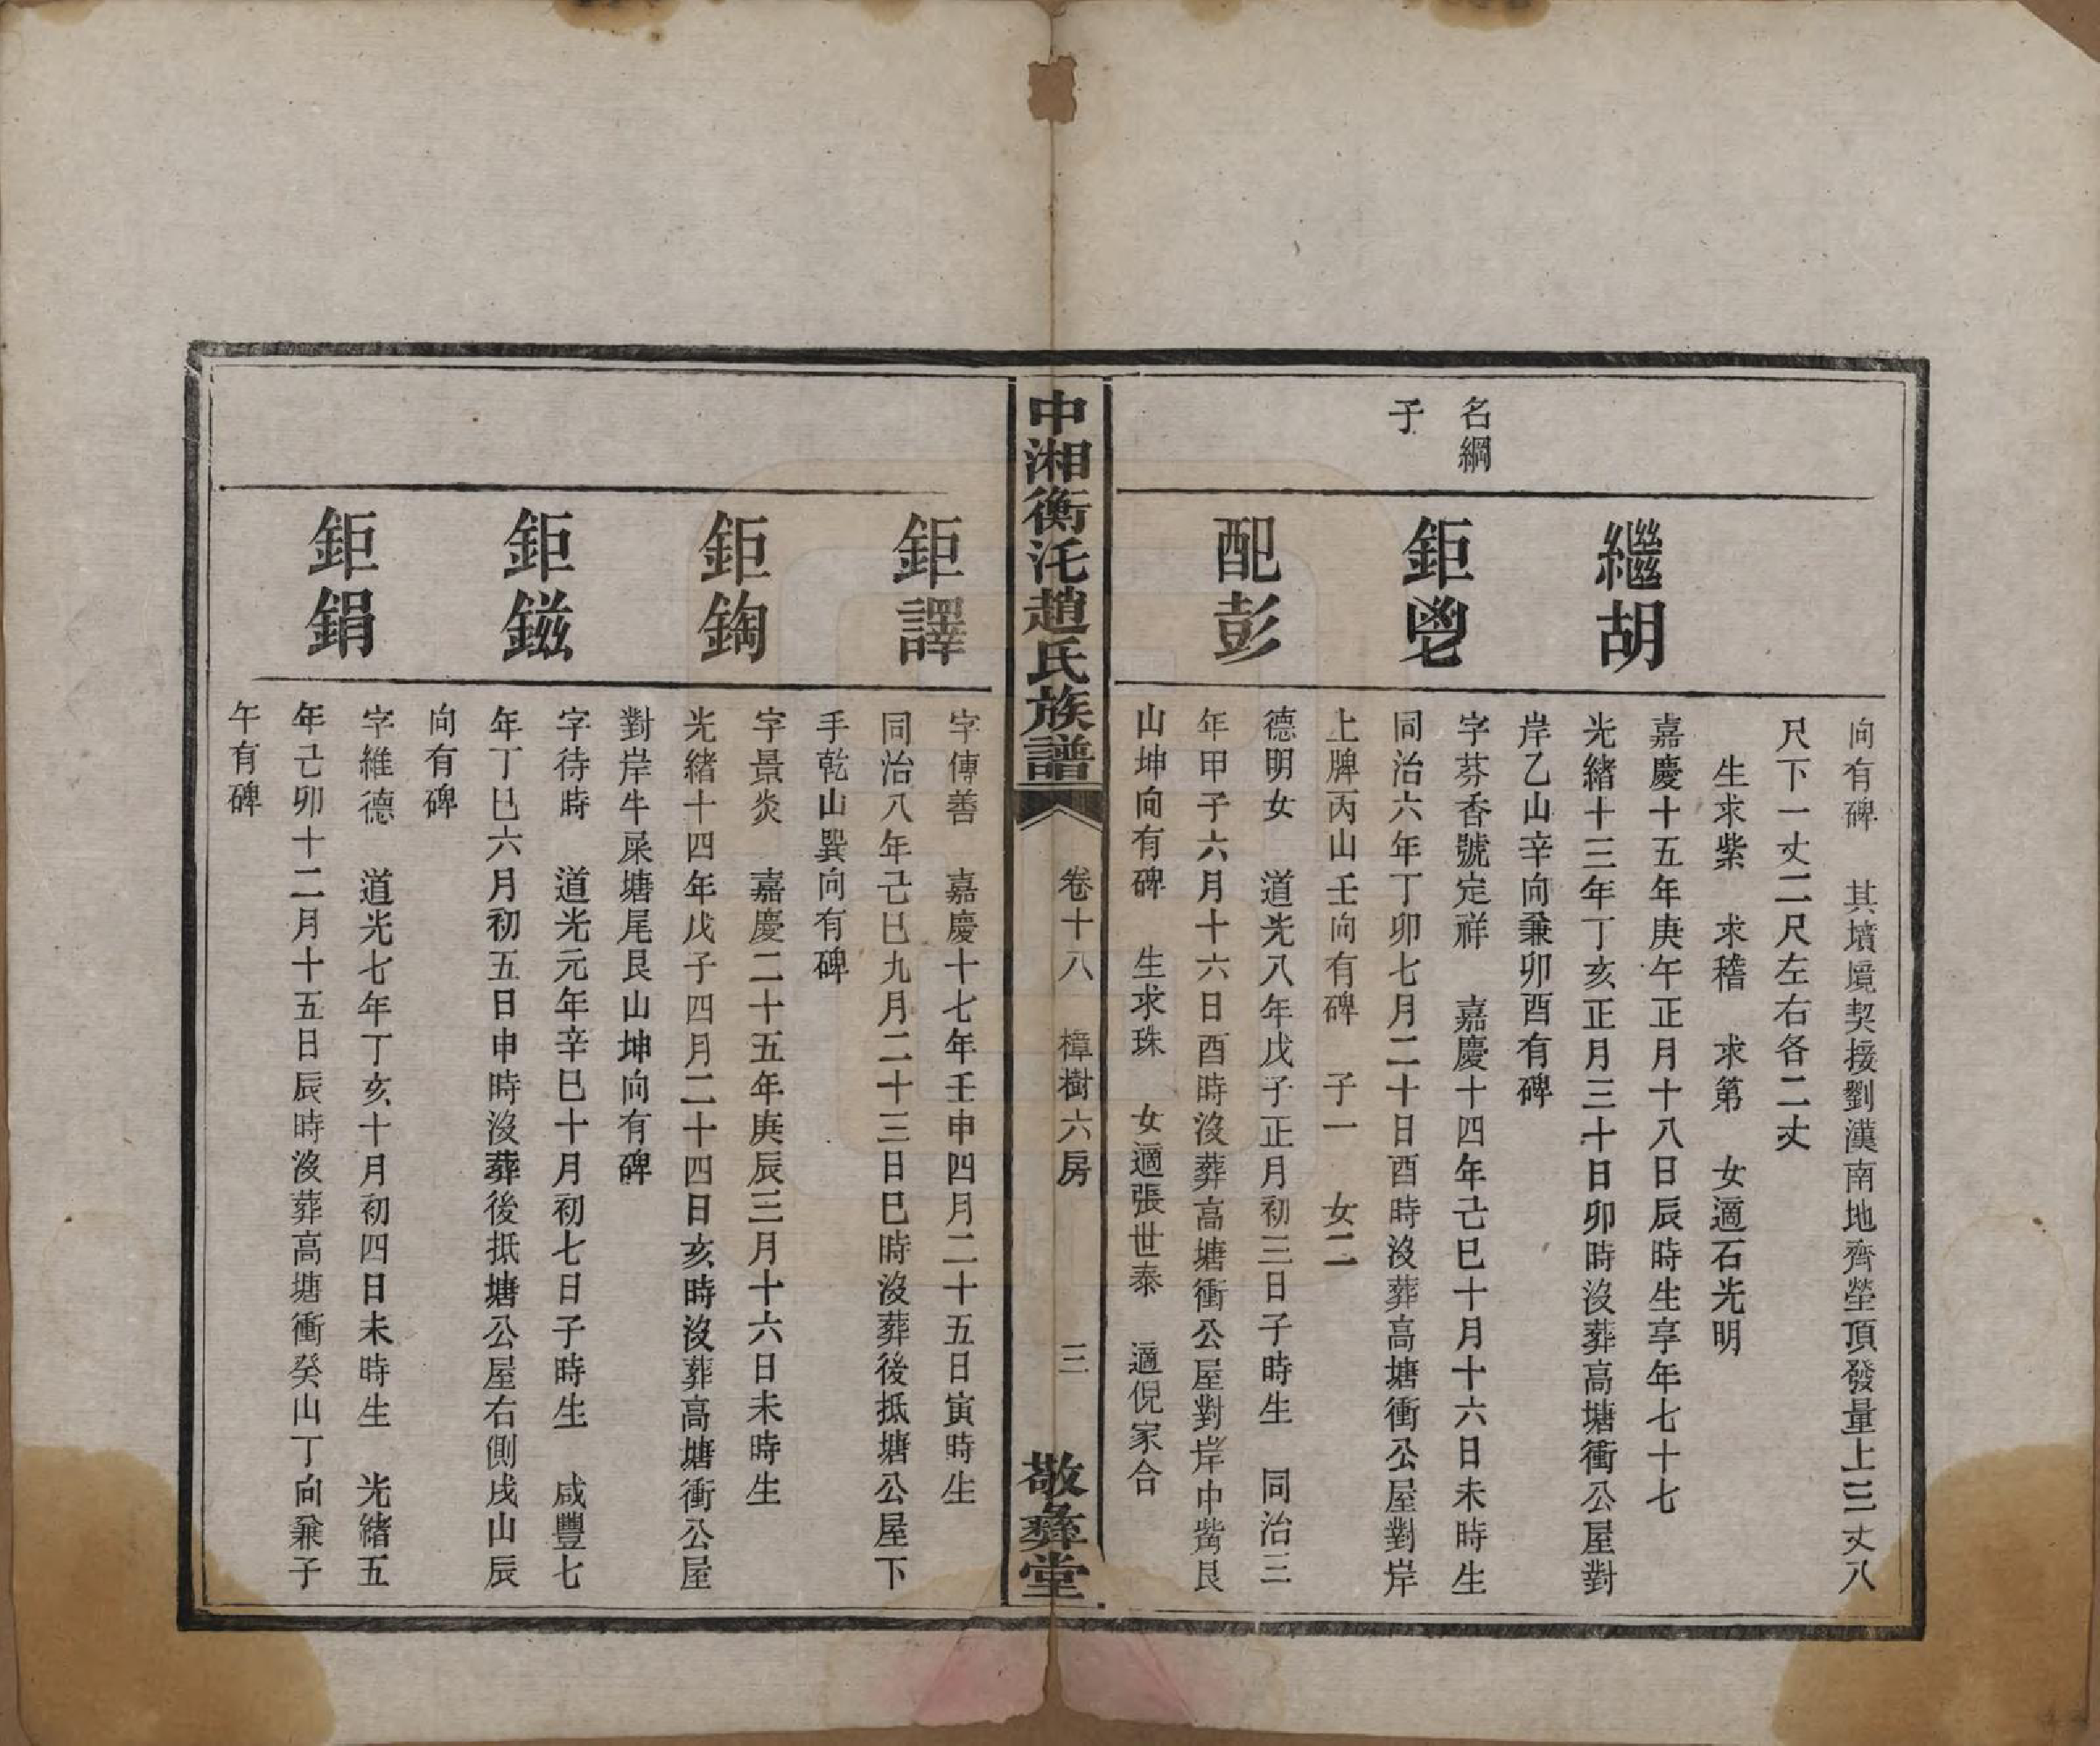 向有碑　其墳境契接劉漢南地齊塋頂發量上三丈八
尺下一丈二尺左右各二丈
生求紫　求稽　求第　女適石光明
繼胡
嘉慶十五年庚午正月十八日辰時生享年七十七
光緒十三年丁亥正月三十日卯時沒葬高塘衝公屋對
岸乙山辛向兼卯酉有碑
名綱
子
鉅
字芬香號定祥　嘉慶十四年己巳十月十六日未時生
同治六年丁卯七月二十日酉時沒葬高塘衝公屋對岸
上牌丙山壬向有碑　子一　女二
配彭
德明女　道光八年戊子正月初三日子時生　同治三
年甲子六月十六日酉時沒葬高塘衝公屋對岸中嘴艮
山坤向有碑　生求珠　女適張世泰　適倪家合
中湘衡汑趙氏族譜
卷十八　樟樹六房
三
敬彝堂
鉅譯
字傳善　嘉慶十七年壬申四月二十五日寅時生
同治八年己巳九月二十三日巳時沒葬後抵塘公屋下
手乾山巽向有碑
鉅鋾
字景炎　嘉慶二十五年庚辰三月十六日未時生
光緒十四年戊子四月二十四日亥時沒葬高塘衝公屋
對岸牛屎塘尾艮山坤向有碑
鉅鎡
字待時　道光元年辛巳十月初七日子時生　咸豐七
年丁巳六月初五日申時沒葬後抵塘公屋右側戌山辰
向有碑
鉅鋗
字維德　道光七年丁亥十月初四日未時生　光緒五
年己卯十二月十五日辰時沒葬高塘衝癸山丁向兼子
午有碑